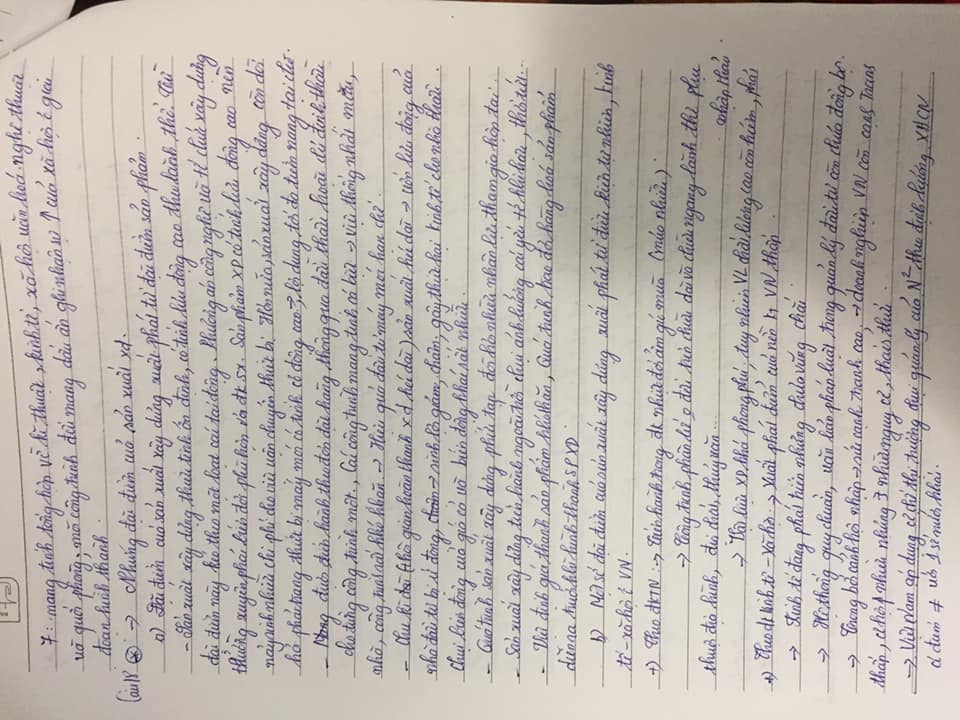 7: mang tính tổng hợp về kĩ thuật, kinh tế, xã hội văn hoá nghệ thuật
và quốc phòng, mỗi công trình đều mang dấu ấn ghi nhận sự ↑ của xã hội ở giai
đoạn hình thành
Câu 18 ⊛ ⇒ Những đặc điểm của sản xuất xd.
a) Đặc điểm của sản xuất xây dựng xuất phát từ đặc điểm sản phẩm.
- Sản xuất xây dựng thiếu tính ổn định, có tính lưu động cao theo lãnh thổ
đặc điểm này kéo theo một loạt các tác động. Phương án công nghệ và tổ chức xây dựng
thường xuyên phải biến đổi phù hợp với đk sx. Sản phẩm XD có tính lưu động cao nên
nảy sinh nhiều chi phí cho việc vận chuyển thiết bị. Hơn nữa, sản xuất xây dựng còn đòi
hỏi phải trang thiết bị máy móc có tính cơ động cao, lợi dụng tối đa tiềm năng tại chỗ.
- được tiến hành theo đơn đặt hàng thông qua đấu thầu hoặc chỉ định thầu
cho từng công trình một, các công trình mang tính cá biệt → việc thống nhất mẫu,
mã, công nghệ khó khăn → Hiệu quả đầu tư máy móc hạn chế
- Chu kì sx (thời gian hoàn thành xd kéo dài), sản xuất kéo dài → vốn lưu động của
nhà đầu tư bị ứ đọng sinh bị giam, chôn, gây thiệt hại kinh tế cho nhà thầu
Chịu biến động của giá cả và biến động khác rất nhiều.
- Quá trình sản xuất xây dựng phức tạp, đòi hỏi nhiều nhân lực tham gia hiện tại
- Sản xuất xây dựng tiến hành ngoài trời chịu ảnh hưởng các yếu tố khí hậu, thời tiết...
- Việc định giá thành sản phẩm khó khăn, Quá trình trao đổi hàng hoá sản phẩm
diễn ra trước khi hình thành SPXD
b) Một số đặc điểm của sản xuất xây dựng xuất phát từ điều kiện tự nhiên, kinh
tế - xã hội ở VN.
+) Theo đk TN → Tiến hành trong đk nhiệt đới ẩm gió mùa (mưa nhiều)
→ Công trình phân bố ở dải trải chiều dài và chiều ngang lãnh thổ phụ
thuộc địa hình, địa chất, thuỷ văn...
→ Vật liệu XD khá phong phú, tuy nhiên VL chất lượng cao còn hiếm, phải
nhập khẩu
+) Theo đk kinh tế - xã hội → Xuất phát điểm của nền kt VN thấp
→ Kinh tế đang phát triển nhưng chưa vững chắc
→ Hệ thống quy chuẩn, văn bản pháp luật trong quản lý đầu tư còn chưa đồng bộ.
→ Trong bối cảnh hội nhập → sức cạnh tranh cao, → doanh nghiệp VN còn cạnh tranh
thấp, cơ hội nhiều nhưng ∃ nhiều nguy cơ, thách thức.
→ Việt Nam áp dụng cơ chế thị trường dưới quản lý của N² theo định hướng XHCN